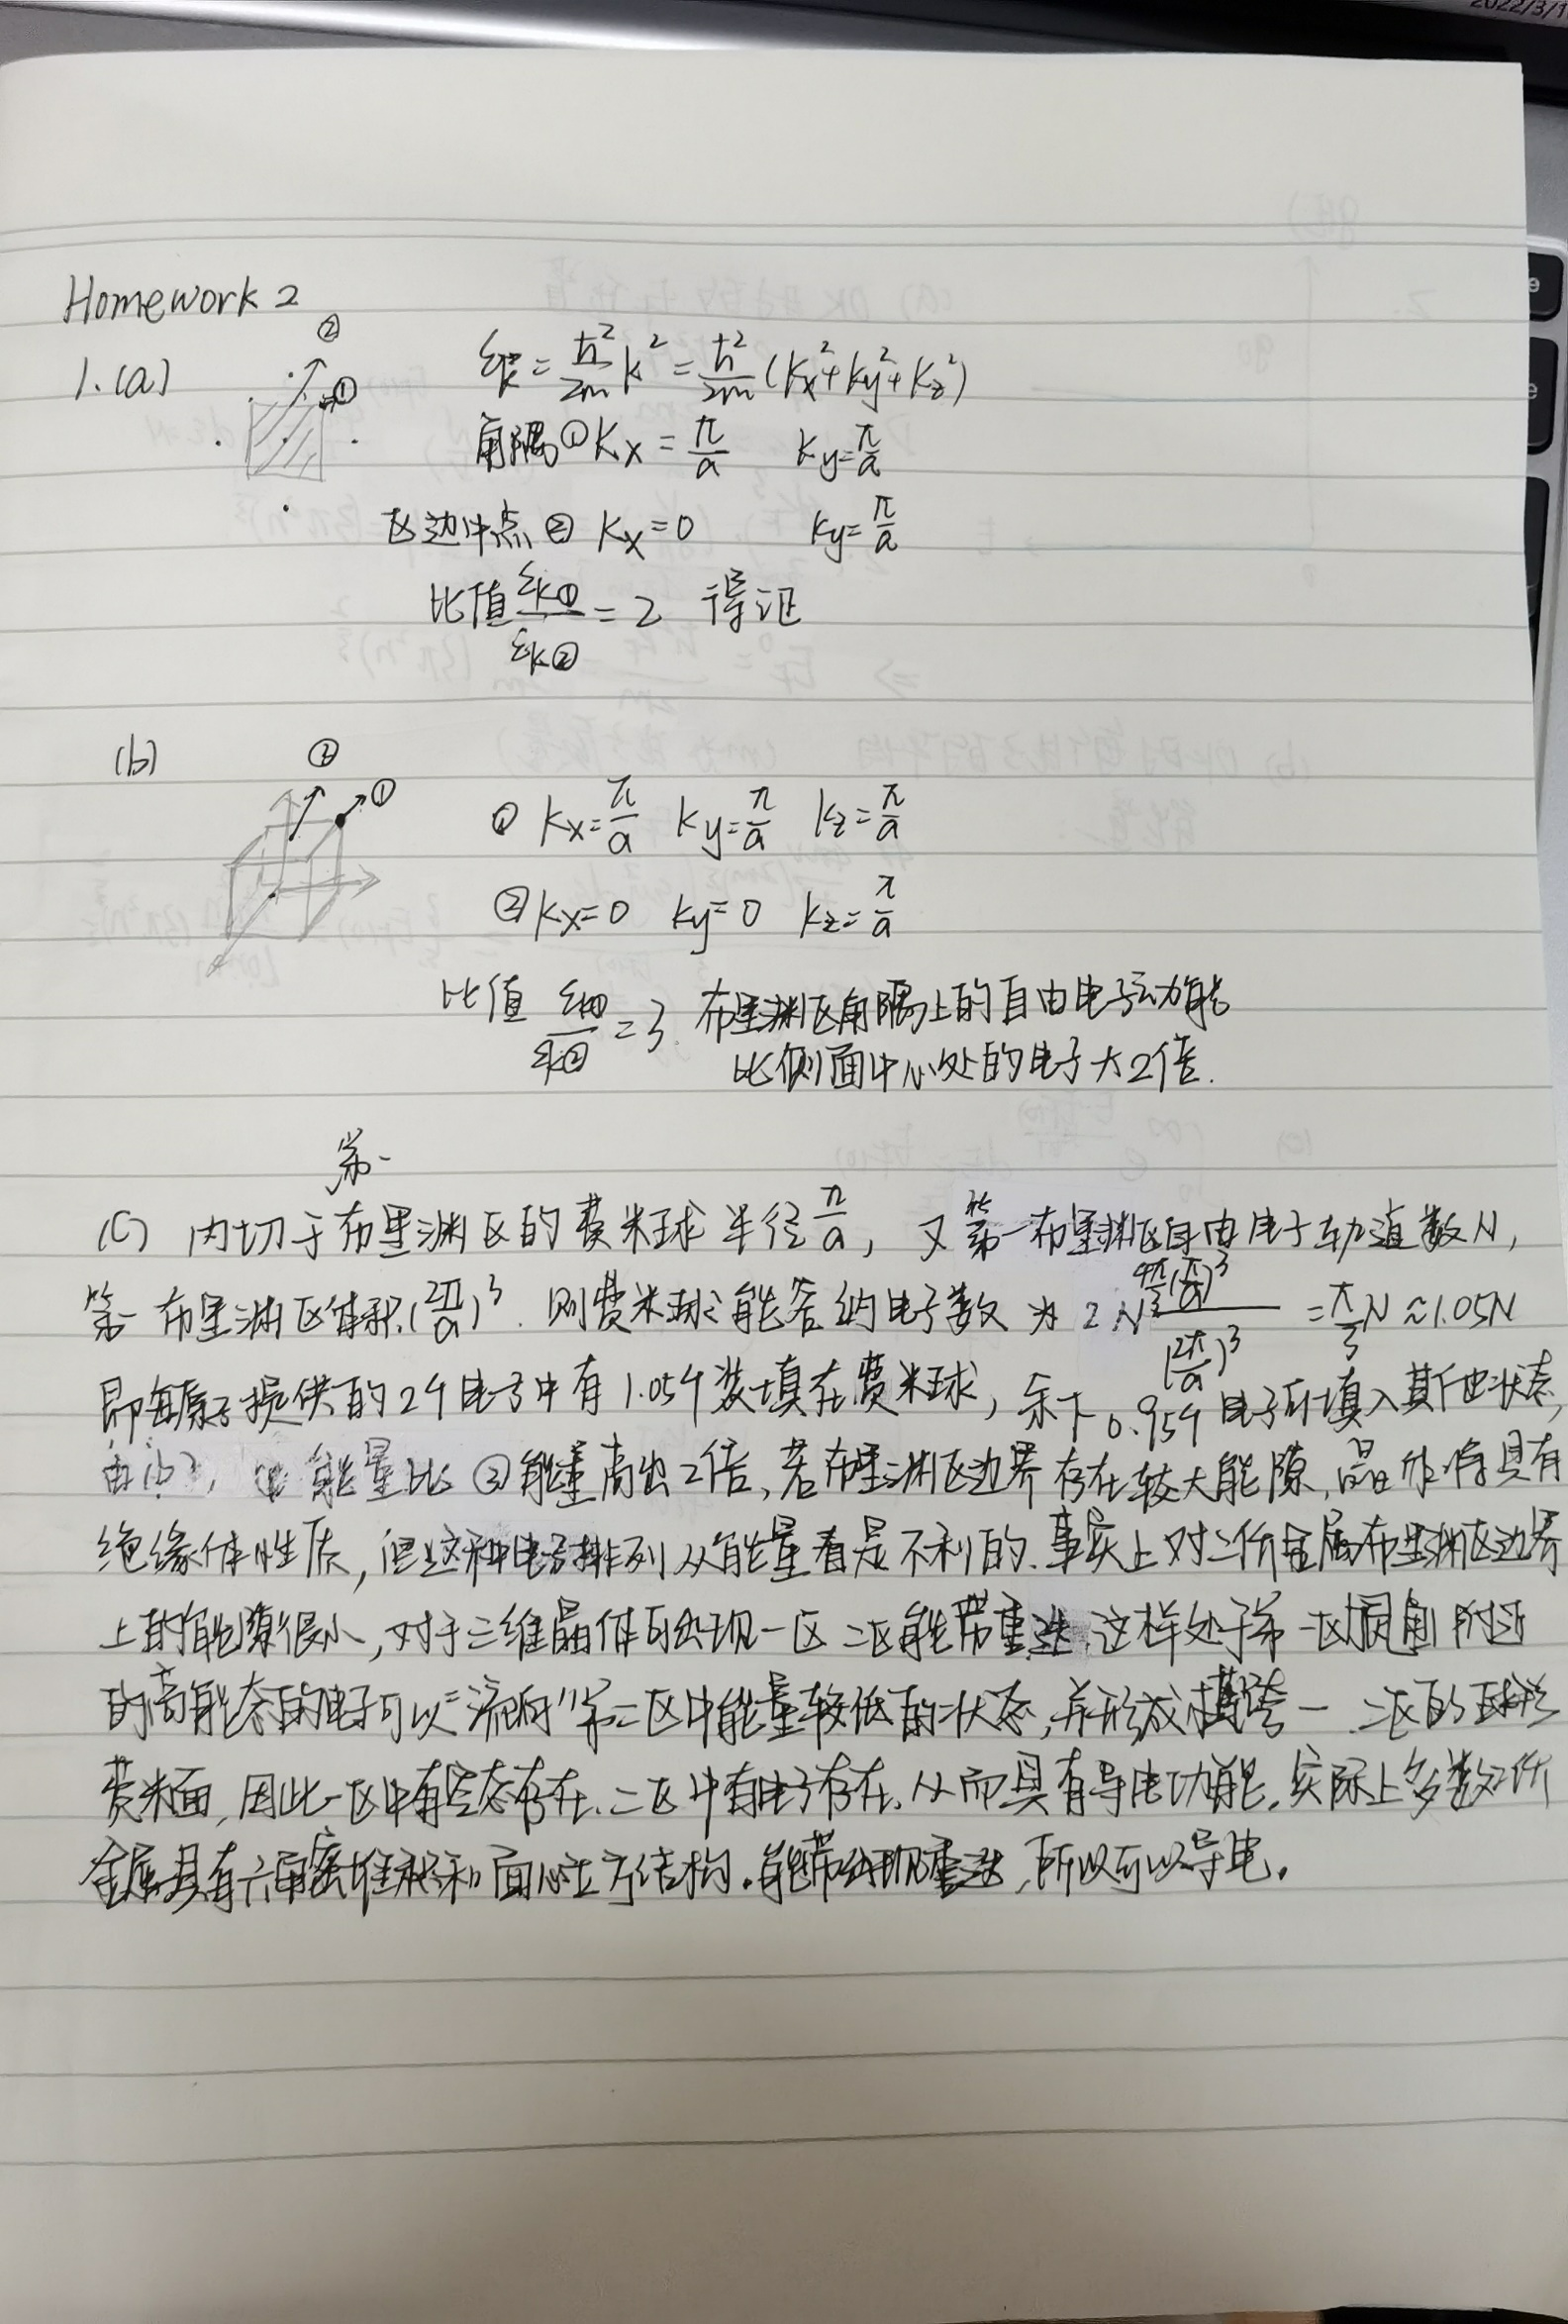 2022/3/1
Homework 2
1.(a) ② ① εk = ħ²/2m k² = ħ²/2m (kx²+ky²+kz²)
角隅① Kx = π/a ky = π/a
区边中点② Kx = 0 ky = π/a
比值 εk①/εk② = 2 得证
(b) ② ① ① kx = π/a ky = π/a kz = π/a
② kx = 0 ky = 0 kz = π/a
比值 εk①/εk② = 3. 布里渊区角隅上的自由电子动能
比侧面中心处的电子大2倍.
第一
(c) 内切于布里渊区的费米球半径π/a, 又第一布里渊区自由电子轨道数N,
第一布里渊区体积(2π/a)³. 则费米球能容纳电子数为 2N (4π/3 (π/a)³)/(2π/a)³ = π/3 N ≈ 1.05N
即每原子提供的2个电子中有1.05个装填在费米球, 余下0.95个电子所填入其他状态,
由(b), ① 能量比②能量高出2倍, 若布里渊区边界存在较大能隙, 晶体将具有
绝缘体性质, 但这种电子排列从能量看是不利的. 事实上对二价金属布里渊区边界
上的能隙很小, 对于三维晶体可出现一区二区能带重迭. 这样处于第一区隅角附近
的高能态的电子可以“流向”第二区中能量较低的状态, 并形成横跨一、二区的球形
费米面, 因此一区中有空态存在, 二区中有电子存在, 从而具有导电功能. 实际上多数二价
金属具有六角密堆积和面心立方结构. 能带出现重迭, 所以可以导电.